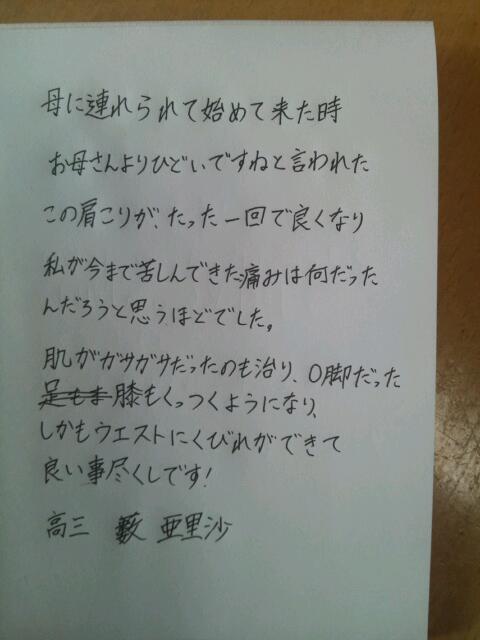 母に連れられて始めて来た時
お母さんよりひどいですねと言われた
この肩こりが、たった一回で良くなり
私が今まで苦しんできた痛みは何だった
んだろうと思うほどでした。
肌がガサガサだったのも治り、O脚だった
膝もくっつくようになり、
しかもウエストにくびれができて
良い事尽くしです!
高三 藪 亜里沙